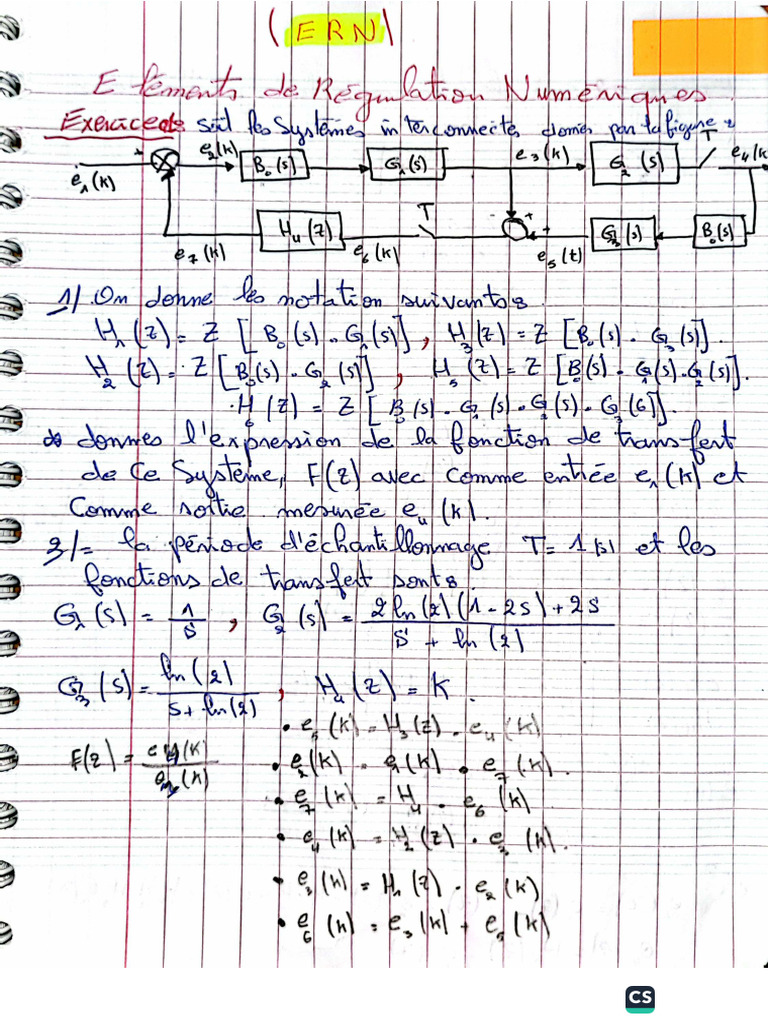 (ERN)
Eléments de Régulation Numériques.
Exercice soit les systèmes interconnectés donnés par la figure 2
e₁(k) + e₂(k) B₀(s) G₁(s) e₃(k) G₂(s) T e₄(k
e₇(k) H₄(z) T e₆(k) - + + e₅(t) G₃(s) B₀(s)
1) On donne les notation suivantes
H₁(z) = Z [B₀(s) . G₁(s)], H₃(z) = Z [B₀(s) . G₃(s)].
H₂(z) = Z [B₀(s) . G₂(s)], H₅(z) = Z [B₀(s) . G₁(s) . G₂(s)].
. H₆(z) = Z [B₀(s) . G₁(s) . G₂(s) . G₃(6)].
donnes l'expression de la fonction de transfert
de ce système, F(z) avec comme entrée e₁(k) et
comme sortie mesurée e₄(k).
3/= la période d'échantillonnage T= 1(s) et les
fonctions de transfert sont:
G₁(s) = 1/s, G₂(s) = 2ln(2)(1-2s)+2s / s + ln(2)
G₃(s) = ln(2) / s+ln(2), H₄(z) = K.
F(z) = e4(k) / (k)
• e₅(k) = H₃(z) . e₄(k)
• e₂(k) = e₁(k) • e₇(k).
• e₇(k) = H₄ . e₆(k)
• e₄(k) = H₂(z) . e₃(k).
• e₃(k) = H₁(z) . e₂(k)
• e₆(k) = e₃(k) + e₅(k)
CS